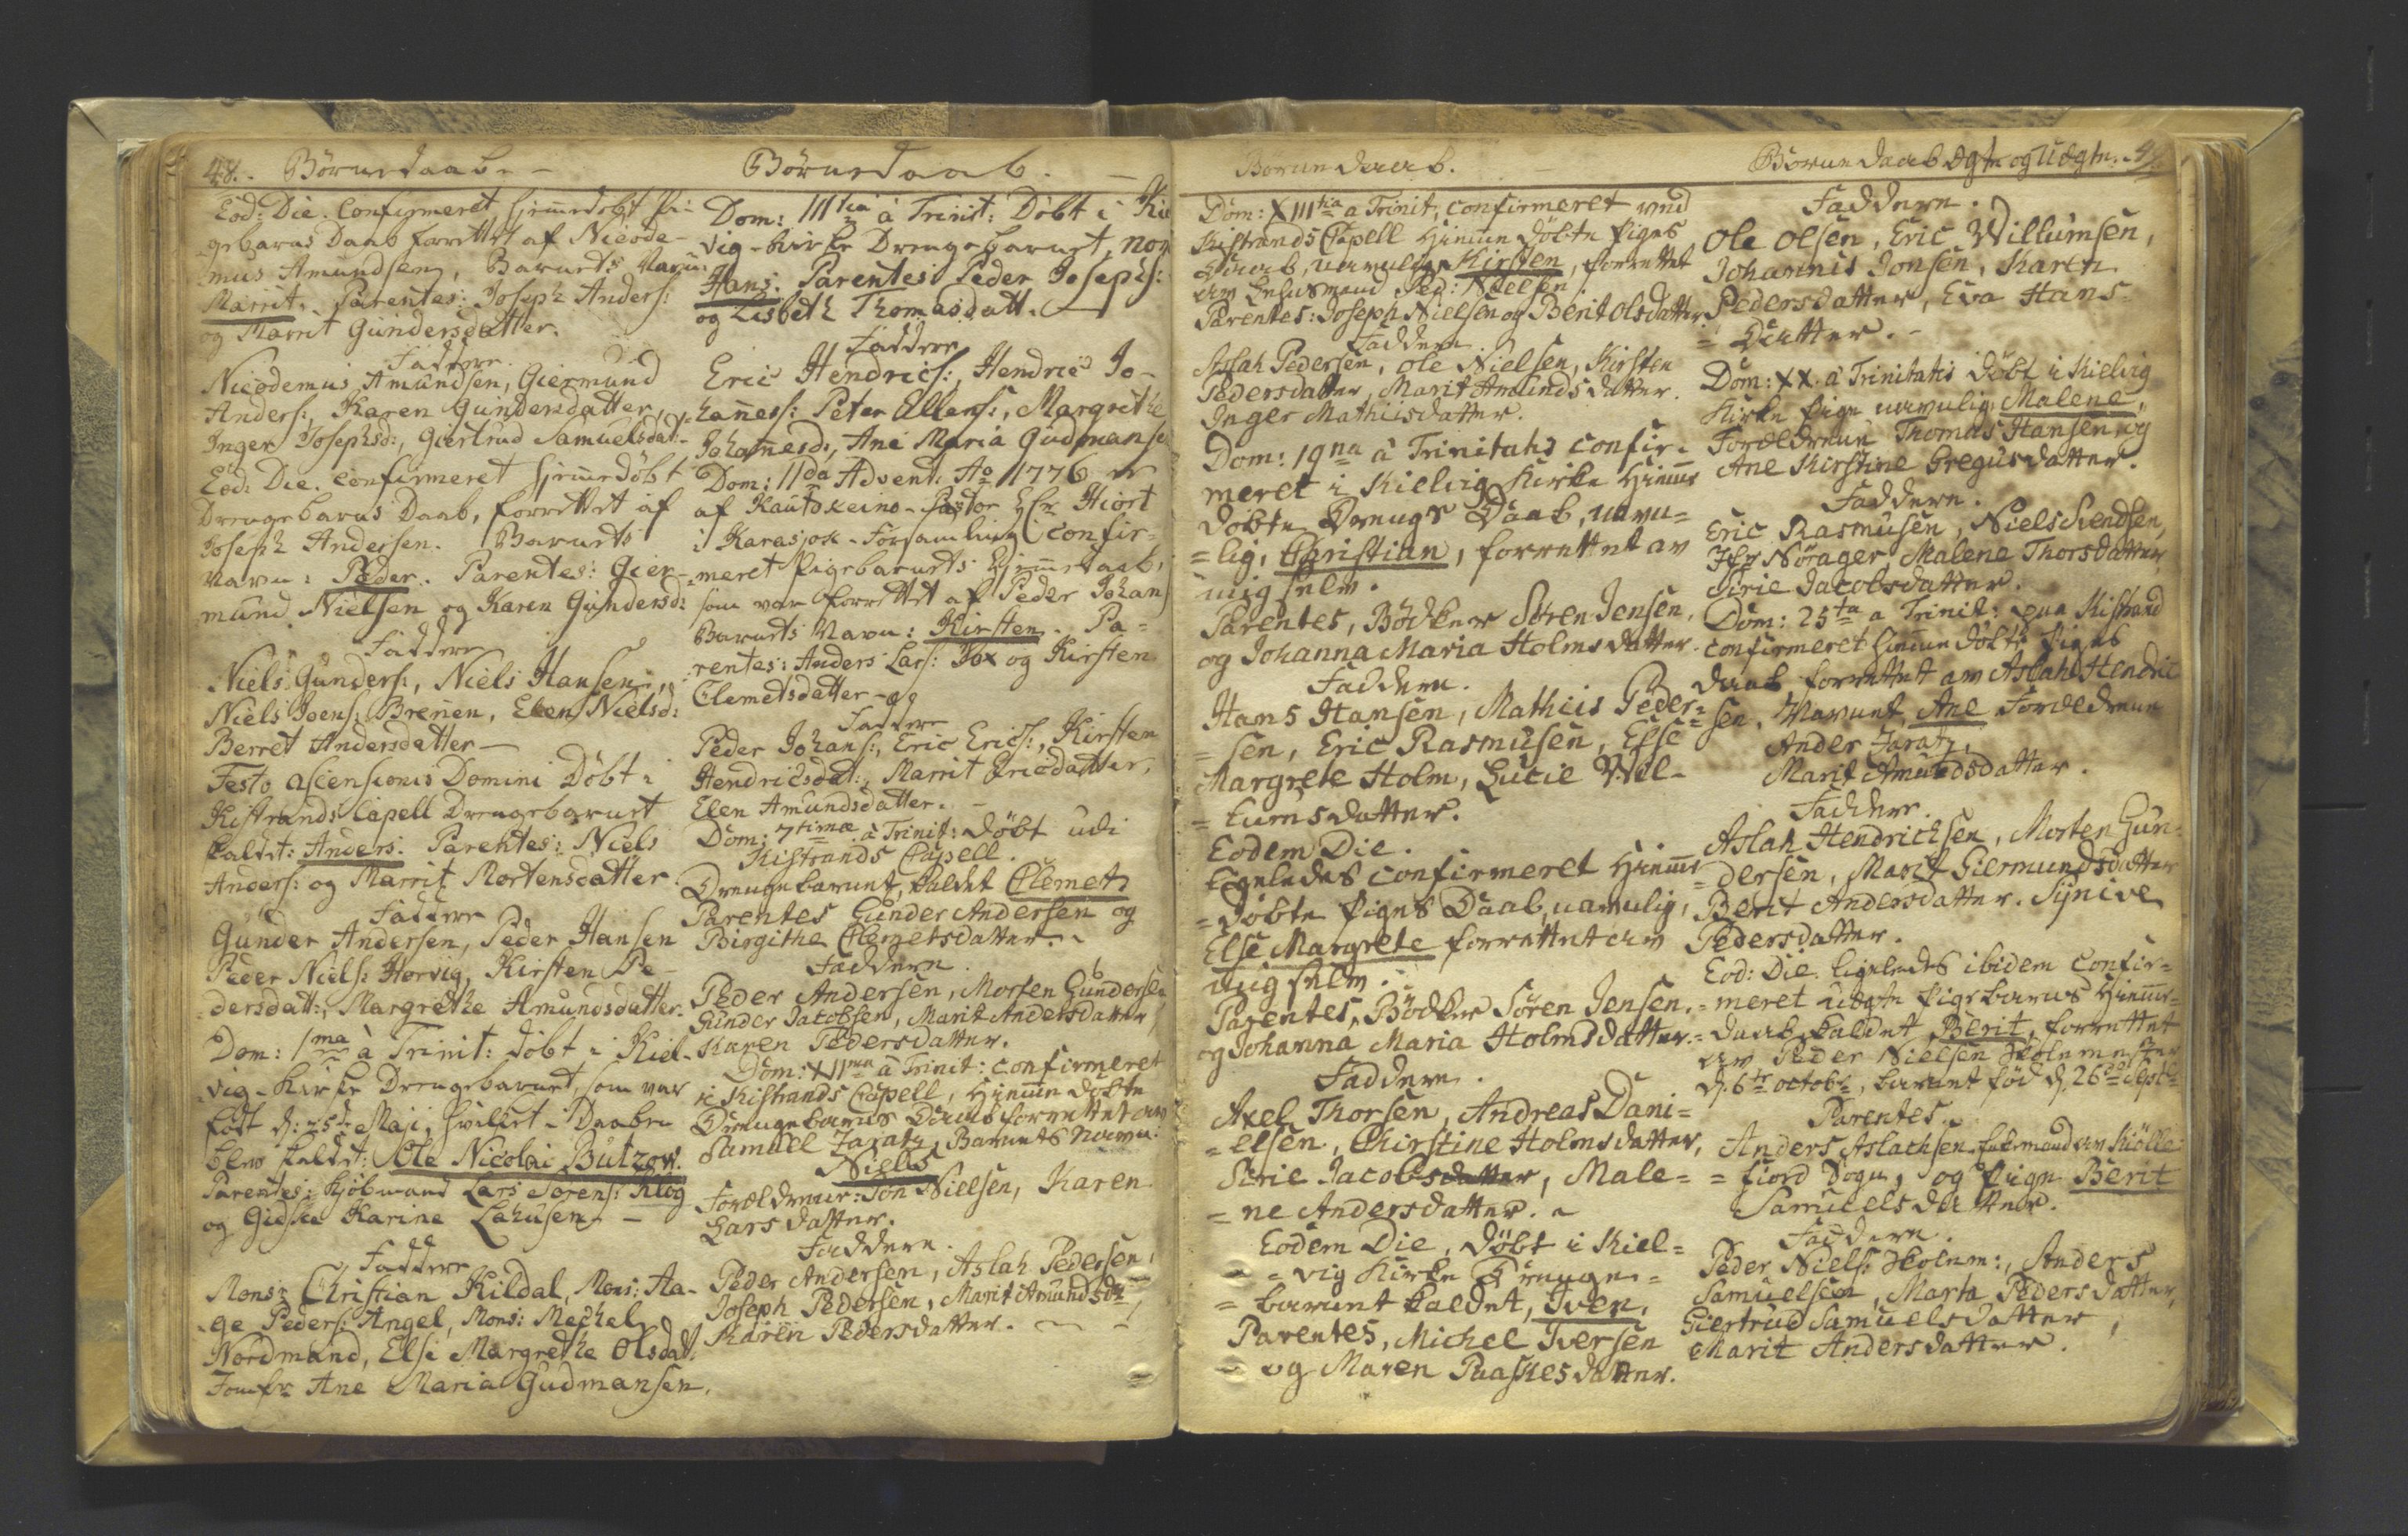 48. Børnedaab. -
Eod: Die. Confirmeret hiemedøbt Pi-
gebarns Daab forrettet af Nicode-
mus Amundsen, Barnets Navn
Marrit. Parentes: Joseph Anders:
og Marrit Gundersdatter.
Faddere
Nicodemus Amundsen, Giermund
Anders:, Karen Gundersdatter,
Inger Josephsd:, Giertrud Samuelsdat:
Eod: Die. confirmeret hiemedøbt
Drengebarns Daab, forrettet af
Joseph Andersen. Barnets
Navn: Peder. Parentes: Gier-
mund Nielsen og Karen Gundersd:
Faddere
Niels Gunders:, Niels Hansen,
Niels Joens: Brenen, Elen Nielsd:
Berret Andersdatter -
Festo ascensionis Domini Døbt i
Kistrands Capell Drengebarnet
kaldt: Anders. Parentes: Niels
Anders: og Marrit Mortensdatter.
Faddere
Gunder Andersen, Peder Hansen
Peder Niels: Horvig, Kirsten Pe-
dersdatt:, Margrethe Amundsdatter.
Dom: 1ma à Trinit: døbt i Kiel-
vig-Kirke Drengebarnet, som var
født d: 25de Maji, hvilket i Daaben
blev kaldt: Ole Nicolai Butzow.
Parentes: Kjøbmand Lars Sørens: Klog
og Gidsce Karine Lahusen -
Faddere
Monsr Christian Kildal, Mons: Aa-
ge Peders: Angel, Mons: Mechel
Nordmand, Else Margrethe Olsdat.
Jomfr Ane Maria Gudmansen.
Børnedaab. -
Dom: IIItia à Trinit: Døbt i Kiel
vig-Kirke Drengebarnet, nom
Hans. Parentes Peder Josephs:
og Lisbeth Thomasdatt.
Faddere
Eric Hendrics:, Hendric Jo-
hanness: Peter Ellens:, Margrethe
Johannesd:, Ane Maria Gudmanse
Dom: IIda Advent. Ao 1776 er
af Kautokeino-Pastor Hr Hiort
i Karasjox-Forsamling Confir-
meret Pigebarnets Hiemedaab,
som var forrettet af Peder Johans
Barnets Navn: Kirsten. Pa-
rentes: Anders Lars: Fox og Kirsten
Clemetsdatter -
Faddere
Peder Johans:, Eric Erics:, Kirsten
Hendricsdat:, Marrit Ericsdatter,
Elen Amundsdatter. -
Dom: 7timæ à Trinit: døbt udi
Kistrands Capell.
Drengebarnet, kaldet Clemet,
Parentes Gunder Andersen og
Birgithe Clemetsdatter.
Faddere.
Peder Andersen, Morten Gundersen
Gunder Jacobsen, Marit Andersdatter,
Karen Pedersdatter.
Dom: XIIma à Trinit: confirmeret
i Kistrands Capell, Hiemme døbte
Drengebarns Daab forrettet av
Samuel Zaratz, Barnets Navn:
Niels
Forældrene: Jon Nielsen, Karen
Larsdatter.
Faddere.
Peder Andersen, Aslak Pedersen,
Joseph Pedersen, Marit Amundsdr,
Karen Pedersdatter.
Børne Daab.
Dom: XIIItia a Trinit, confirmeret ved
Kistrands Capell Hiemme døbte Piges
Daab, navnlig, Kirsten, forrettet
av Lehnsmand Ped: Nielsen.
Parentes: Joseph Nielsen og Berit Olsdatter.
Faddere.
Aslak Pedersen, Ole Nielsen, Kirsten
Pedersdatter, Marit Amundsdatter.
Inger Mathisdatter.
Dom: 19na à Trinitatis confir-
meret i Kielvig Kirke Hiemme
døbte Drengs Daab, navn=
=lig, Christian, forrettet av
mig selv.
Parentes, Bødker Søren Jensen,
og Johanna Maria Holmsdatter.
Faddere.
Hans Hansen, Mathis Peder=
=sen, Eric Rasmusen, Else
Margrete Holm, Lucie Vil-
=lumsdatter.
Eodem Die.
Ligeledes confirmeret Hiemme
=døbte Piges Daab, navnlig,
Else Margrete forrettet av
mig selv.
Parentes, Bødker Søren Jensen.
og Johanna Maria Holmsdatter.
Faddere.
Axel Thorsen, Andreas Dani=
=elsen, Chirstine Holmsdatter,
Sirie Jacobsdatter, Male=
=ne Andersdatter.
Eodem Die, døbt i Kiel=
=vig Kirke Drenge=
=barnet kaldet, Iven,
Parentes, Michel Iversen
og Maren Paaskesdatter.
Børne Daab Ægte og Uægte.
Faddere.
Ole Olsen, Eric Willumsen,
Johannis Jonsen, Karen
Pedersdatter, Eva Hans=
=Datter.
Dom: XX. à Trinitatis døbt i Kielvig
Kirke Pige navnlig, Malene,
Forældrene Thomas Hansen og
Ane Kirstine Gregusdatter.
Faddere.
Eric Rasmusen, Niels Svendsen,
Hr Nørager, Malene Thorsdatter,
Sirie Jacobsdatter.
Dom: 25ta a Trinit: paa Kistrand
confirmeret Hiemme døbte Piges
daab forrettet av Aslak Hendric
sen. Navnet, Ane Forældrene
Ander Zaratz,
Marit Amundsdatter.
Faddere.
Aslak Hendrichsen, Morten Gun=
=dersen, Marit Giermundsdatter
Berit Andersdatter. Synive
Pedersdatter.
Eod: Die. ligeledes ibidem Confir=
=meret uægte Pigebarns Hiemme=
=daab kaldet Berit, forrettet
av Peder Nielsen Skolemester
d. 6te octobr, barnet fød d. 26de Septbr
Parentes.
Anders Aslachsen, Enkemand av Kiølle=
=fiord Sogn, og Pigen Berit
Samuelsdatter.
Faddere.
Peder Niels: Skolem:, Anders
Samuelsen, Marta Pedersdatter,
Giertrud Samuelsdatter,
Marit Andersdatter.